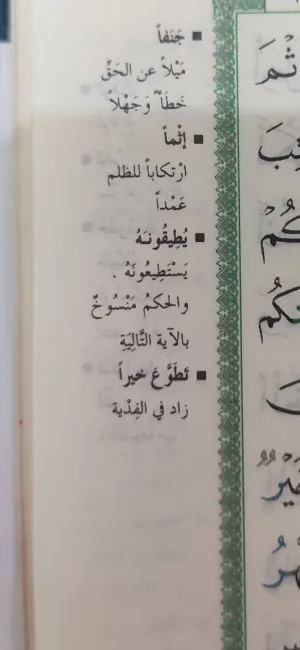 ■ جَنَفاً
مَيْلاً عن الحَقِّ
خَطَأً وَجَهْلاً
■ إثْماً
ارْتكاباً للظلم
عَمْداً
■ يُطِيقُونَهُ
يَسْتَطِيعُونَهُ .
والحكمُ مَنْسُوخٌ
بالآية التَّالِيَةِ
■ تَطَوَّعَ خيراً
زاد في الفِدْية